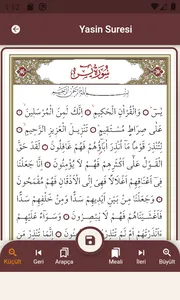 Yasin Suresi
سُورَةُ يٰسٓ
بِسْمِ اللّٰهِ الرَّحْمٰنِ الرَّحِيمِ
يٰسٓ ۞ وَالْقُرْاٰنِ الْحَكِيمِ ۞ اِنَّكَ لَمِنَ الْمُرْسَلِينَ ۞
عَلٰى صِرَاطٍ مُسْتَقِيمٍ ۞ تَنْزِيلَ الْعَزِيزِ الرَّحِيمِ ۞
لِتُنْذِرَ قَوْمًا مَٓا اُنْذِرَ اٰبَٓاؤُ۬هُمْ فَهُمْ غَافِلُونَ ۞ لَقَدْ حَقَّ
الْقَوْلُ عَلٰٓى اَكْثَرِهِمْ فَهُمْ لَا يُؤْمِنُونَ ۞ اِنَّا جَعَلْنَا
فِٓي اَعْنَاقِهِمْ اَغْلَالًا فَهِيَ اِلَى الْاَذْقَانِ فَهُمْ مُقْمَحُونَ ۞
وَجَعَلْنَا مِنْ بَيْنِ اَيْدِيهِمْ سَدًّا وَمِنْ خَلْفِهِمْ سَدًّا
فَاَغْشَيْنَاهُمْ فَهُمْ لَا يُبْصِرُونَ ۞ وَسَوَٓاءٌ عَلَيْهِمْ
Küçült
Geri
Arapça
Meali
İleri
Büyült